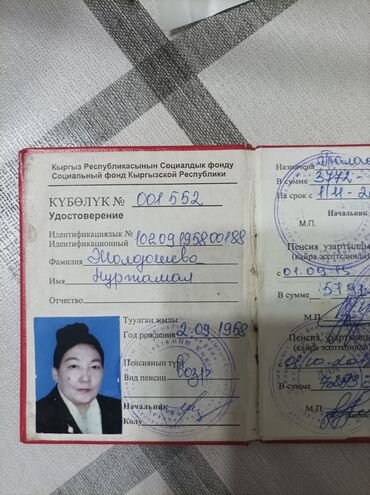 Кыргыз Республикасынын Социалдык фонду
Социальный фонд Кыргызской Республики
КҮБӨЛҮК № 001552
Удостоверение
Идентификациялык №
Идентификационный 10209195800188
Фамилия Жолдошева
Имя Нуржамал
Отчество
Туулган жылы
Год рождения 2.09.1958
Пенсиянын түрү
Вид пенсии возр
Начальник
Колу
Назначена
В сумме 3772-
На срок с 1-11-
Начальник
М.П.
Пенсия узартылды
(кайра эсептелинди)
с 01.09.15
В сумме
М.П.
Пенсия узартылды
(кайра эсептелинди)
В сумме
М.П.